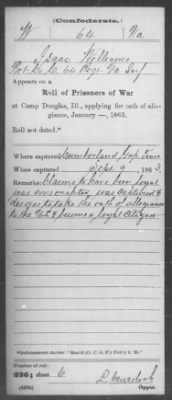 (Confederate.)
W 64 Va
Isaac Williams
Pvt Co. C. 64 Reg. Va Inf
Appears on a
Roll of Prisoners of War
at Camp Douglas, Ill., applying for oath of alle-
giance, January —, 1865.
Roll not dated.*
Where captured Cumberland Gap Tenn
When captured Sept 9, 1863
Remarks: Claims to have been loyal
was conscripted was captured &
desires to take the oath of allegiance
to the U.S & become a loyal Citizen
Number of roll:
sheet 6
Copyist.